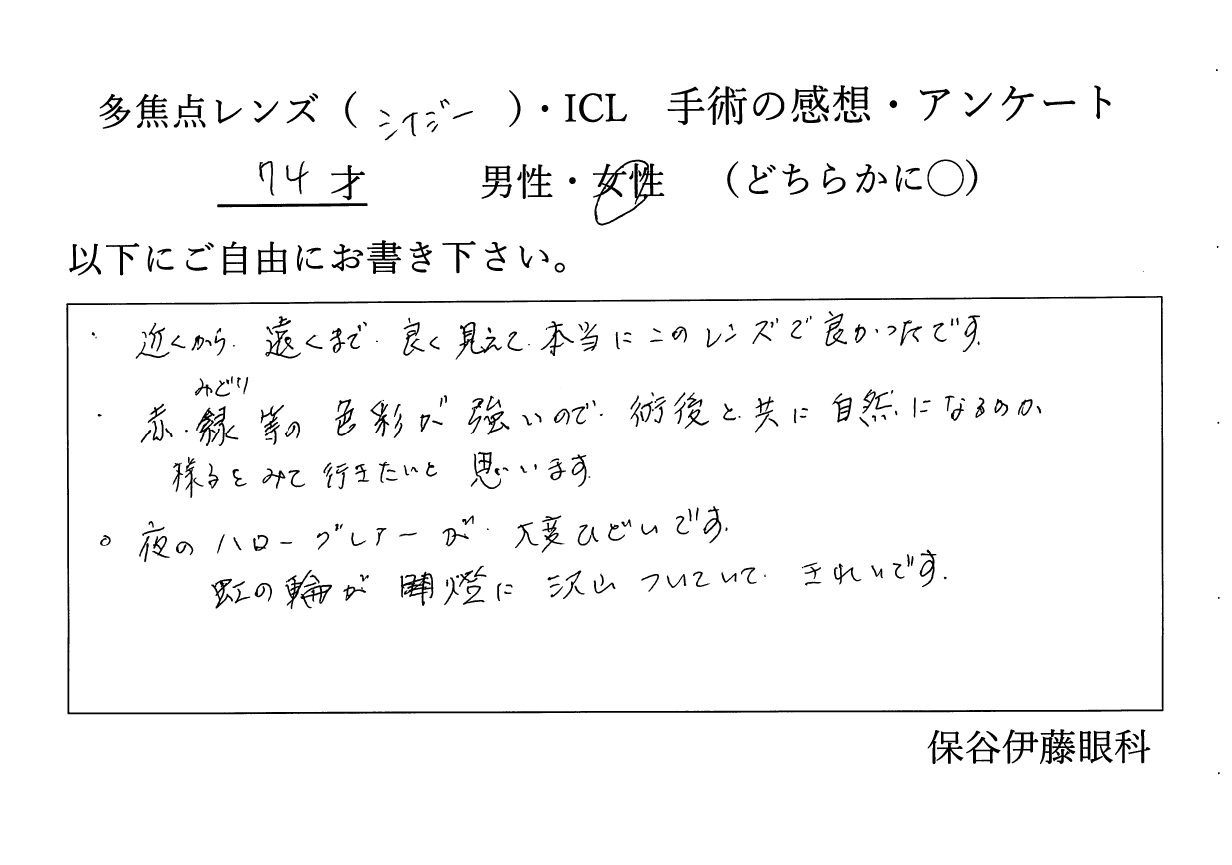 多焦点レンズ（シィジー）・ICL 手術の感想・アンケート
74才 男性・女性 （どちらかに〇）
以下にご自由にお書き下さい。
・近くから、遠くまで、良く見えて、本当にこのレンズで良かったです。
みどり
・赤、緑等の色彩が強いので、術後と共に自然になるのか、
様子をみて行きたいと思います。
○夜のハローグレアーが、大変ひどいです。
虹の輪が 燈に沢山ついていて、きれいです。
保谷伊藤眼科